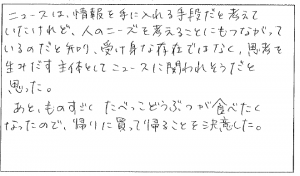 ニュースは、情報を手に入れる手段だと考えて
いたけれど、人のニーズを考えることにもつながって
いるのだと知り、受け身な存在ではなく、思考を
生みだす主体としてニュースに関われそうだと
思った。
あと、ものすごく たべっこどうぶつが食べたく
なったので、帰りに買って帰ることを決意した。